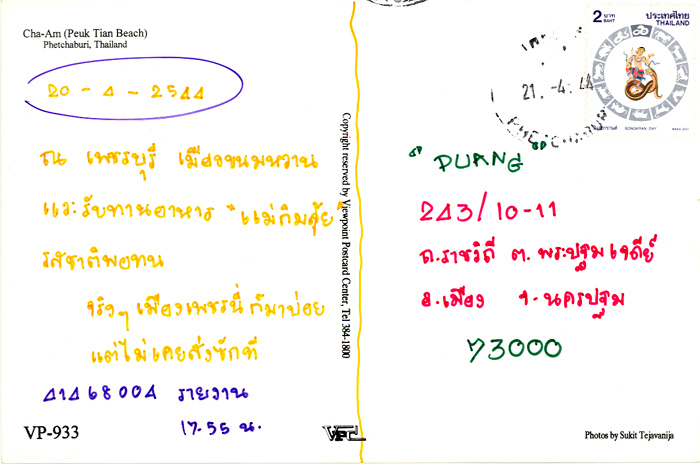 Cha-Am (Peuk Tian Beach)
Phetchaburi, Thailand
20 - 4 - 2544
ณ เพชรบุรี เมืองขนมหวาน
แวะรับทานอาหาร "แม่กิมลุ้ย"
รสชาติพอทน
จริงๆ เมืองเพชรนี่ ก็มาบ่อย
แต่ไม่เคยสั่งซักที
41468004 รายงาน
17.55 น.
VP-933
Copyright reserved by Viewpoint Postcard Center, Tel 384-1800
VPC
2 บาท BAHT
ประเทศไทย
THAILAND
SONGKRAN DAY
21.-4.44
"PUANG"
243/10-11
ถ.ราชวิถี ต. พระปฐมเจดีย์
อ.เมือง จ.นครปฐม
73000
Photos by Sukit Tejavanija